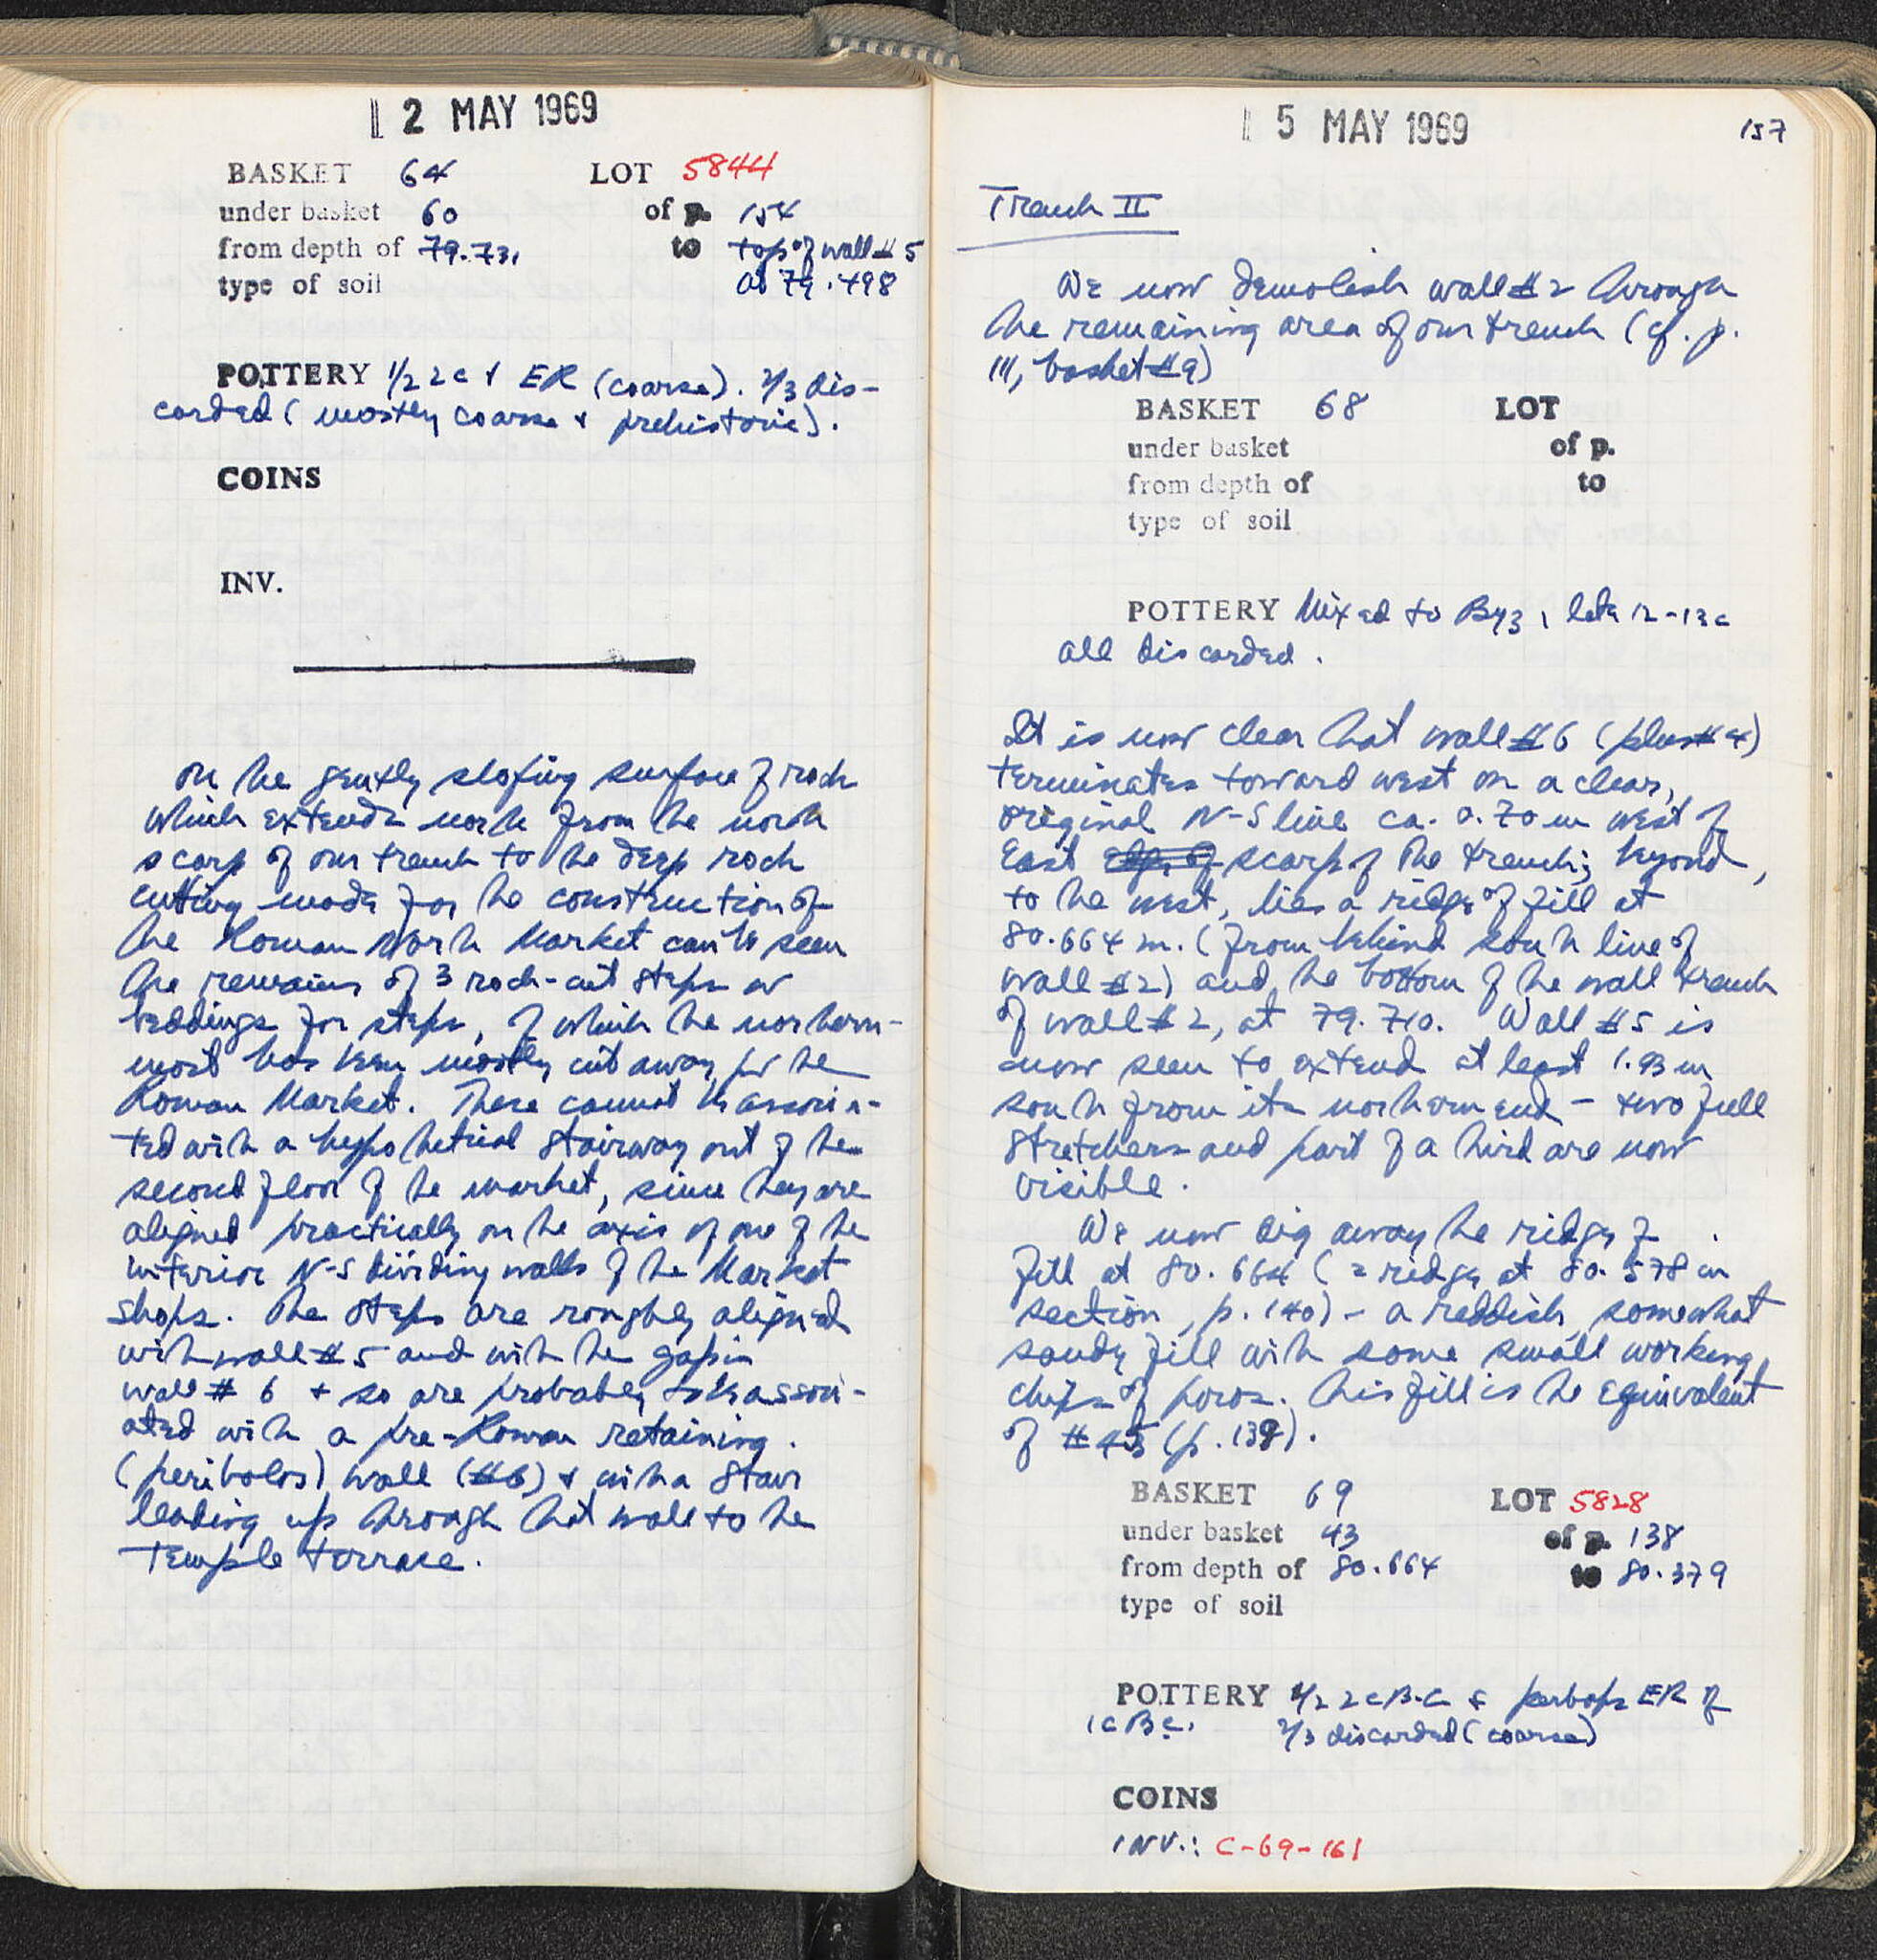 12 MAY 1969
BASKET 64 LOT 5844
under basket 60 of p. 154
from depth of 79.731 to top of wall #5
type of soil at 79.498
POTTERY 1/2 2c & ER (coarse). 2/3 dis-
carded (mostly coarse & prehistoric).
COINS
INV.
On the gently sloping surface of rock
which extends north from the north
scarp of our trench to the deep rock
cutting made for the construction of
the Roman North Market can be seen
the remains of 3 rock-cut steps or
beddings for steps, of which the northern-
most has been mostly cut away for the
Roman Market. These cannot be associa-
ted with a hypothetical stairway out of the
second floor of the market, since they are
aligned practically on the axis of one of the
interior N-S dividing walls of the Market
shops. The steps are roughly aligned
with wall #5 and with the gap in
wall #6 & so are probably to be associ-
ated with a pre-Roman retaining
(peribolos) wall (#6) & with a stair
leading up through that wall to the
Temple terrace.
15 MAY 1969 157
Trench II
We now demolish wall #2 through
the remaining area of our trench (cf. p.
111, basket #9)
BASKET 68 LOT
under basket of p.
from depth of to
type of soil
POTTERY Mixed to Byz, late 12-13c
all discarded.
It is now clear that wall #6 (plus #4)
terminates toward west on a clear,
original N-S line ca. 0.70 m west of
East scarp of the trench; beyond,
to the west, lies a ridge of fill at
80.664 m. (from behind south line of
wall #2) and the bottom of the wall trench
of wall #2, at 79.710. Wall #5 is
now seen to extend at least 1.93 m
south from its northern end - two full
stretchers and part of a third are now
visible.
We now dig away the ridge of
fill at 80.664 (= ridge at 80.578 in
section, p. 140) - a reddish, somewhat
sandy fill with some small working
chips of poros. This fill is the equivalent
of #43 (p. 138).
BASKET 69 LOT 5828
under basket 43 of p. 138
from depth of 80.664 to 80.379
type of soil
POTTERY 1/2 2c B.C. & perhaps ER of
1c B.C. 2/3 discarded (coarse)
COINS
INV.: C-69-161